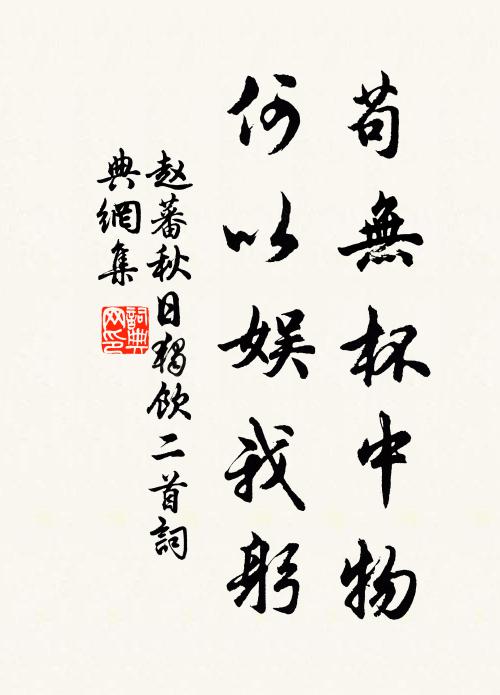 苟無杯中物
何以娱我躬
赵蕃秋日獨飲二首詞
典網集
詞典网印